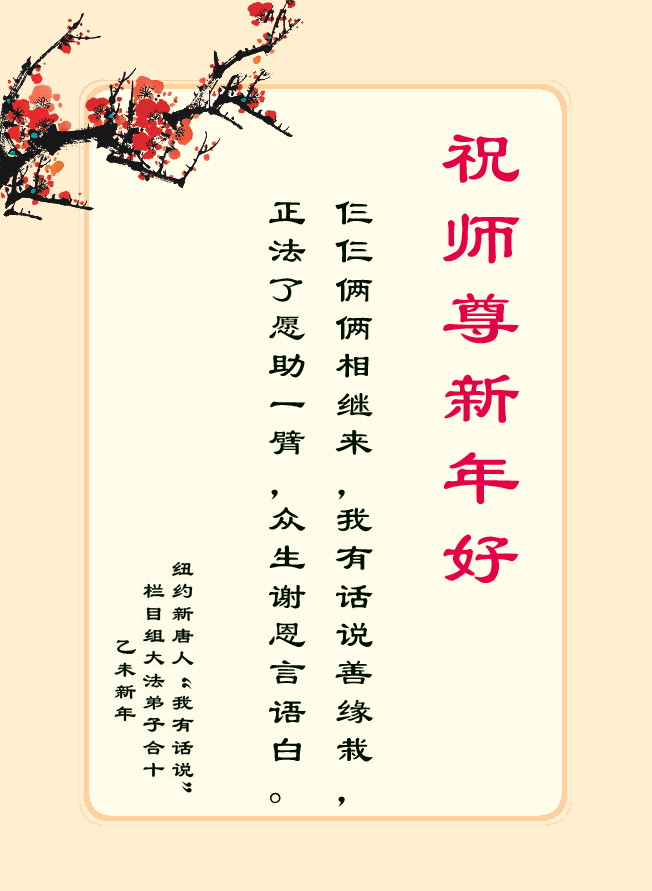 祝师尊新年好
仨仨俩俩相继来，我有话说善缘栽，
正法了愿助一臂，众生谢恩言语白。
纽约新唐人“我有话说”
栏目组大法弟子合十
乙未新年